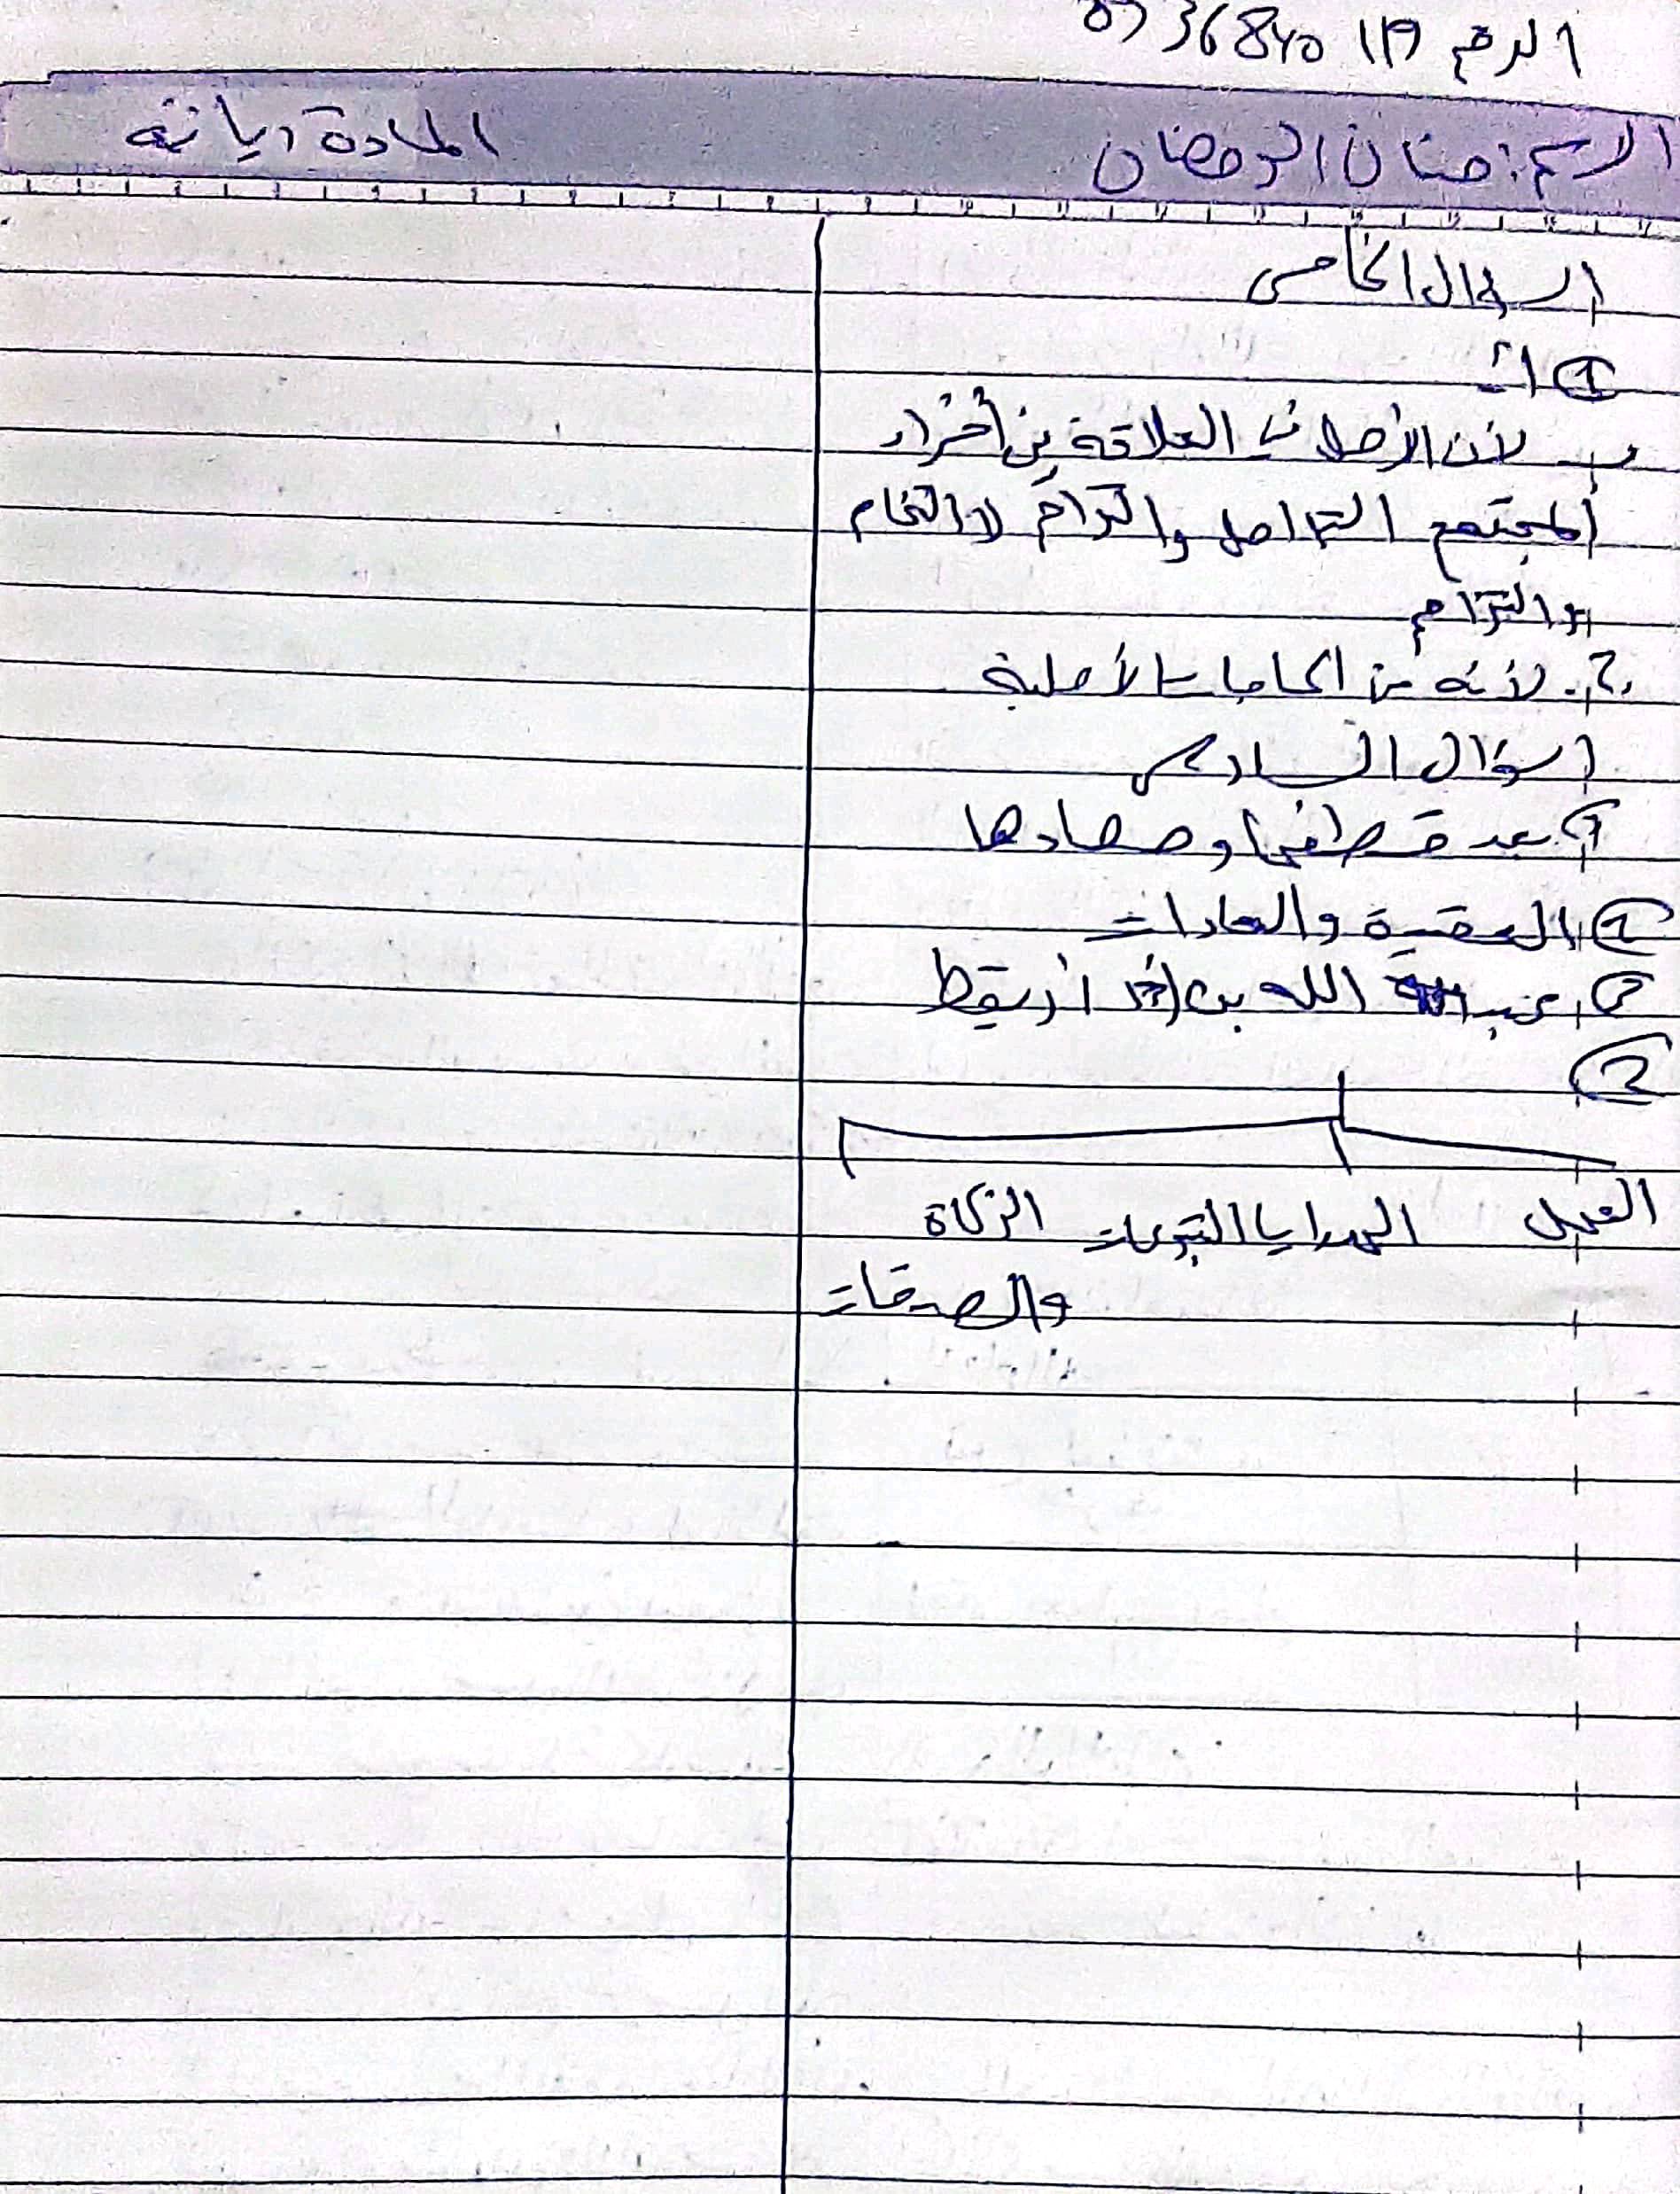 الرقم
الاسم: حنان الرمضان
المادة ديانة
السؤال الخامس
① أ-
لأن الأصل في العلاقة بين أفراد
المجتمع التواصل والتراحم لا التخاصم
والتزاحم
2. لأنه من الحاجات الأصلية
اسؤال السادس
بعد قطفها وحصادها
① العقيدة والعادات
② عبد الله بن أريقط
②
العمل الهدايا التبرعات الزكاة
والصدقات